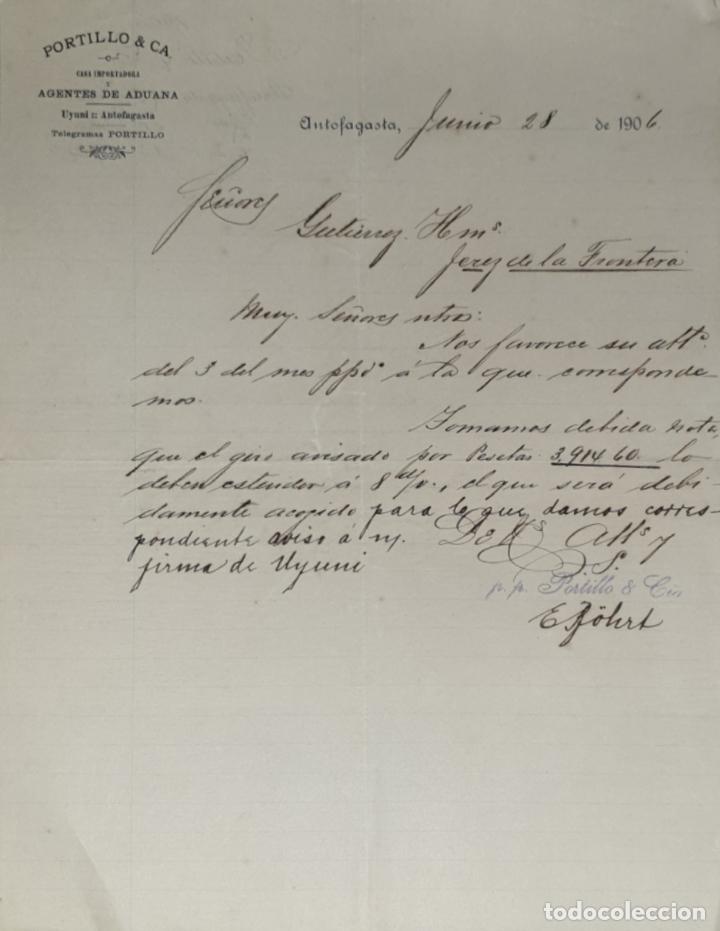 PORTILLO & CA.
CASA IMPORTADORA
Y
AGENTES DE ADUANA
Uyuni :: Antofagasta
Telegramas PORTILLO
Antofagasta, Junio 28 de 1906.
Señores
Gutierrez Hms.
Jerez de la Frontera
Muy Señores ntros:
Nos favorece su atta.
del 3 del mes ppdo á la que corresponde-
mos.
Tomamos debida nota,
que el giro avisado por Pesetas 3,914 60 lo
deben estender á 8 d/v., el que será debi-
damente acojido para lo que damos corres-
pondiente aviso á n/.
firma de Uyuni
De Vs Atts y
S.
p. p. Portillo & Cia
todocoleccion